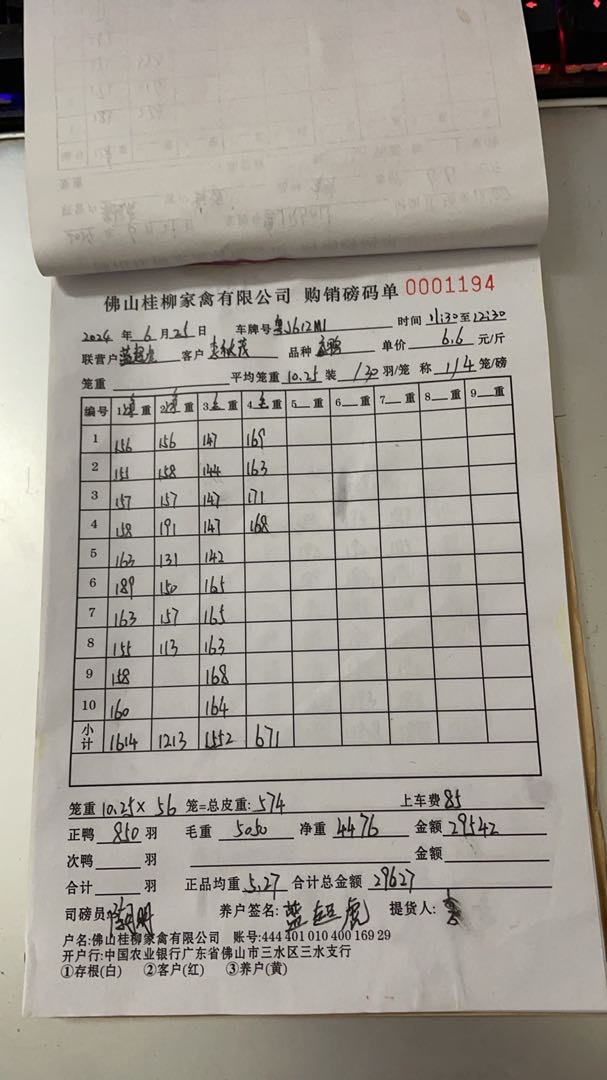 佛山桂柳家禽有限公司 购销磅码单 0001194
2024 年 6 月 25 日 车牌号 粤J612M1 时间 11:30至12:30
联营户 蓝超虎 客户 品种 单价 6.6 元/斤
笼重 平均笼重 10.25 装 /20 羽/笼 称 1/4 笼/磅
编号 1 重 2 重 3 重 4 重 5 重 6 重 7 重 8 重 9 重
1 156 156 147 169
2 155 158 144 163
3 157 157 147 171
4 158 191 147 168
5 163 131 142
6 189 150 165
7 163 157 165
8 155 113 163
9 158 168
10 160 164
小计 1614 1213 1552 671
笼重 10.25× 56 笼=总皮重: 574 上车费 85
正鸭 850 羽 毛重 5050 净重 4476 金额 29542
次鸭 羽 金额
合计 羽 正品均重 5.27 合计总金额 29627
司磅员 养户签名: 蓝超虎 提货人:
户名:佛山桂柳家禽有限公司 账号:444 401 010 400 169 29
开户行:中国农业银行广东省佛山市三水区三水支行
①存根(白) ②客户(红) ③养户(黄)